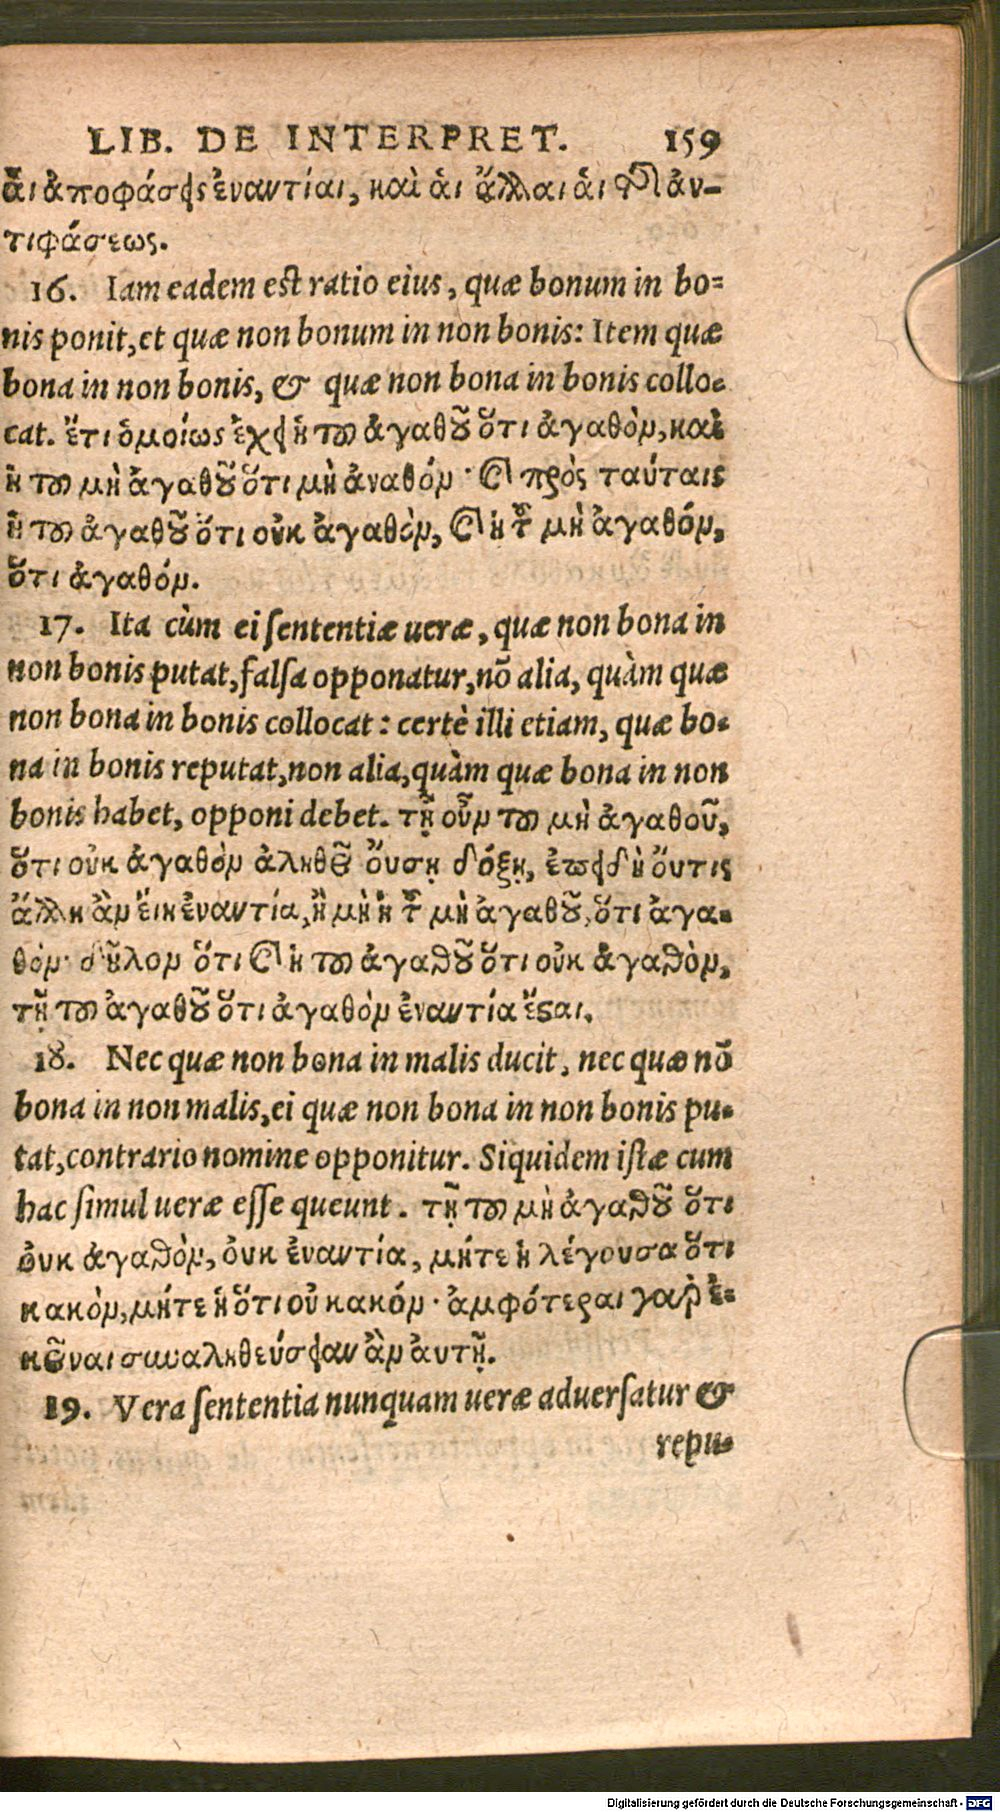 LIB. DE INTERPRET. 159
αἱ ἀποφάσεις ἐναντίαι, καὶ αἱ ἄλλαι αἱ τῆς ἀν-
τιφάσεως.
16. Iam eadem est ratio eius, quæ bonum in bo-
nis ponit, et quæ non bonum in non bonis: Item quæ
bona in non bonis, & quæ non bona in bonis collo-
cat. ἔτι ὁμοίως ἔχει ἡ τοῦ ἀγαθοῦ ὅτι ἀγαθὸν, καὶ
ἡ τοῦ μὴ ἀγαθοῦ ὅτι μὴ ἀναθόν· καὶ πρὸς ταύταις
ἡ τοῦ ἀγαθοῦ ὅτι οὐκ ἀγαθὸν, καὶ ἡ τοῦ μὴ ἀγαθόν,
ὅτι ἀγαθόν.
17. Ita cùm ei sententiæ ueræ, quæ non bona in
non bonis putat, falsa opponatur, nõ alia, quàm quæ
non bona in bonis collocat: certè illi etiam, quæ bo-
na in bonis reputat, non alia, quàm quæ bona in non
bonis habet, opponi debet. τῇ οὖν τοῦ μὴ ἀγαθοῦ,
ὅτι οὐκ ἀγαθὸν ἀληθεῖ οὔσῃ δόξῃ, ἐπεὶ δὴ οὔτις
ἄλλη ἂν εἴη ἐναντία, ἢ μὴ ἡ τοῦ μὴ ἀγαθοῦ, ὅτι ἀγα-
θόν· δῆλον ὅτι καὶ ἡ τοῦ ἀγαθοῦ ὅτι οὐκ ἀγαθὸν,
τῇ τοῦ ἀγαθοῦ ὅτι ἀγαθὸν ἐναντία ἔσται.
18. Nec quæ non bona in malis ducit, nec quæ nõ
bona in non malis, ei quæ non bona in non bonis pu-
tat, contrario nomine opponitur. Siquidem istæ cum
hac simul ueræ esse queunt. τῇ τοῦ μὴ ἀγαθοῦ ὅτι
οὐκ ἀγαθὸν, οὐκ ἐναντία, μήτε ἡ λέγουσα ὅτι
κακὸν, μήτε ἡ ὅτι οὐ κακόν· ἀμφότεραι γὰρ ἐ-
κεῖναι συναληθεύσειαν ἂν αὐτῇ.
19. Vera sententia nunquam ueræ aduersatur &
repu-
Digitalisierung gefördert durch die Deutsche Forschungsgemeinschaft - DFG